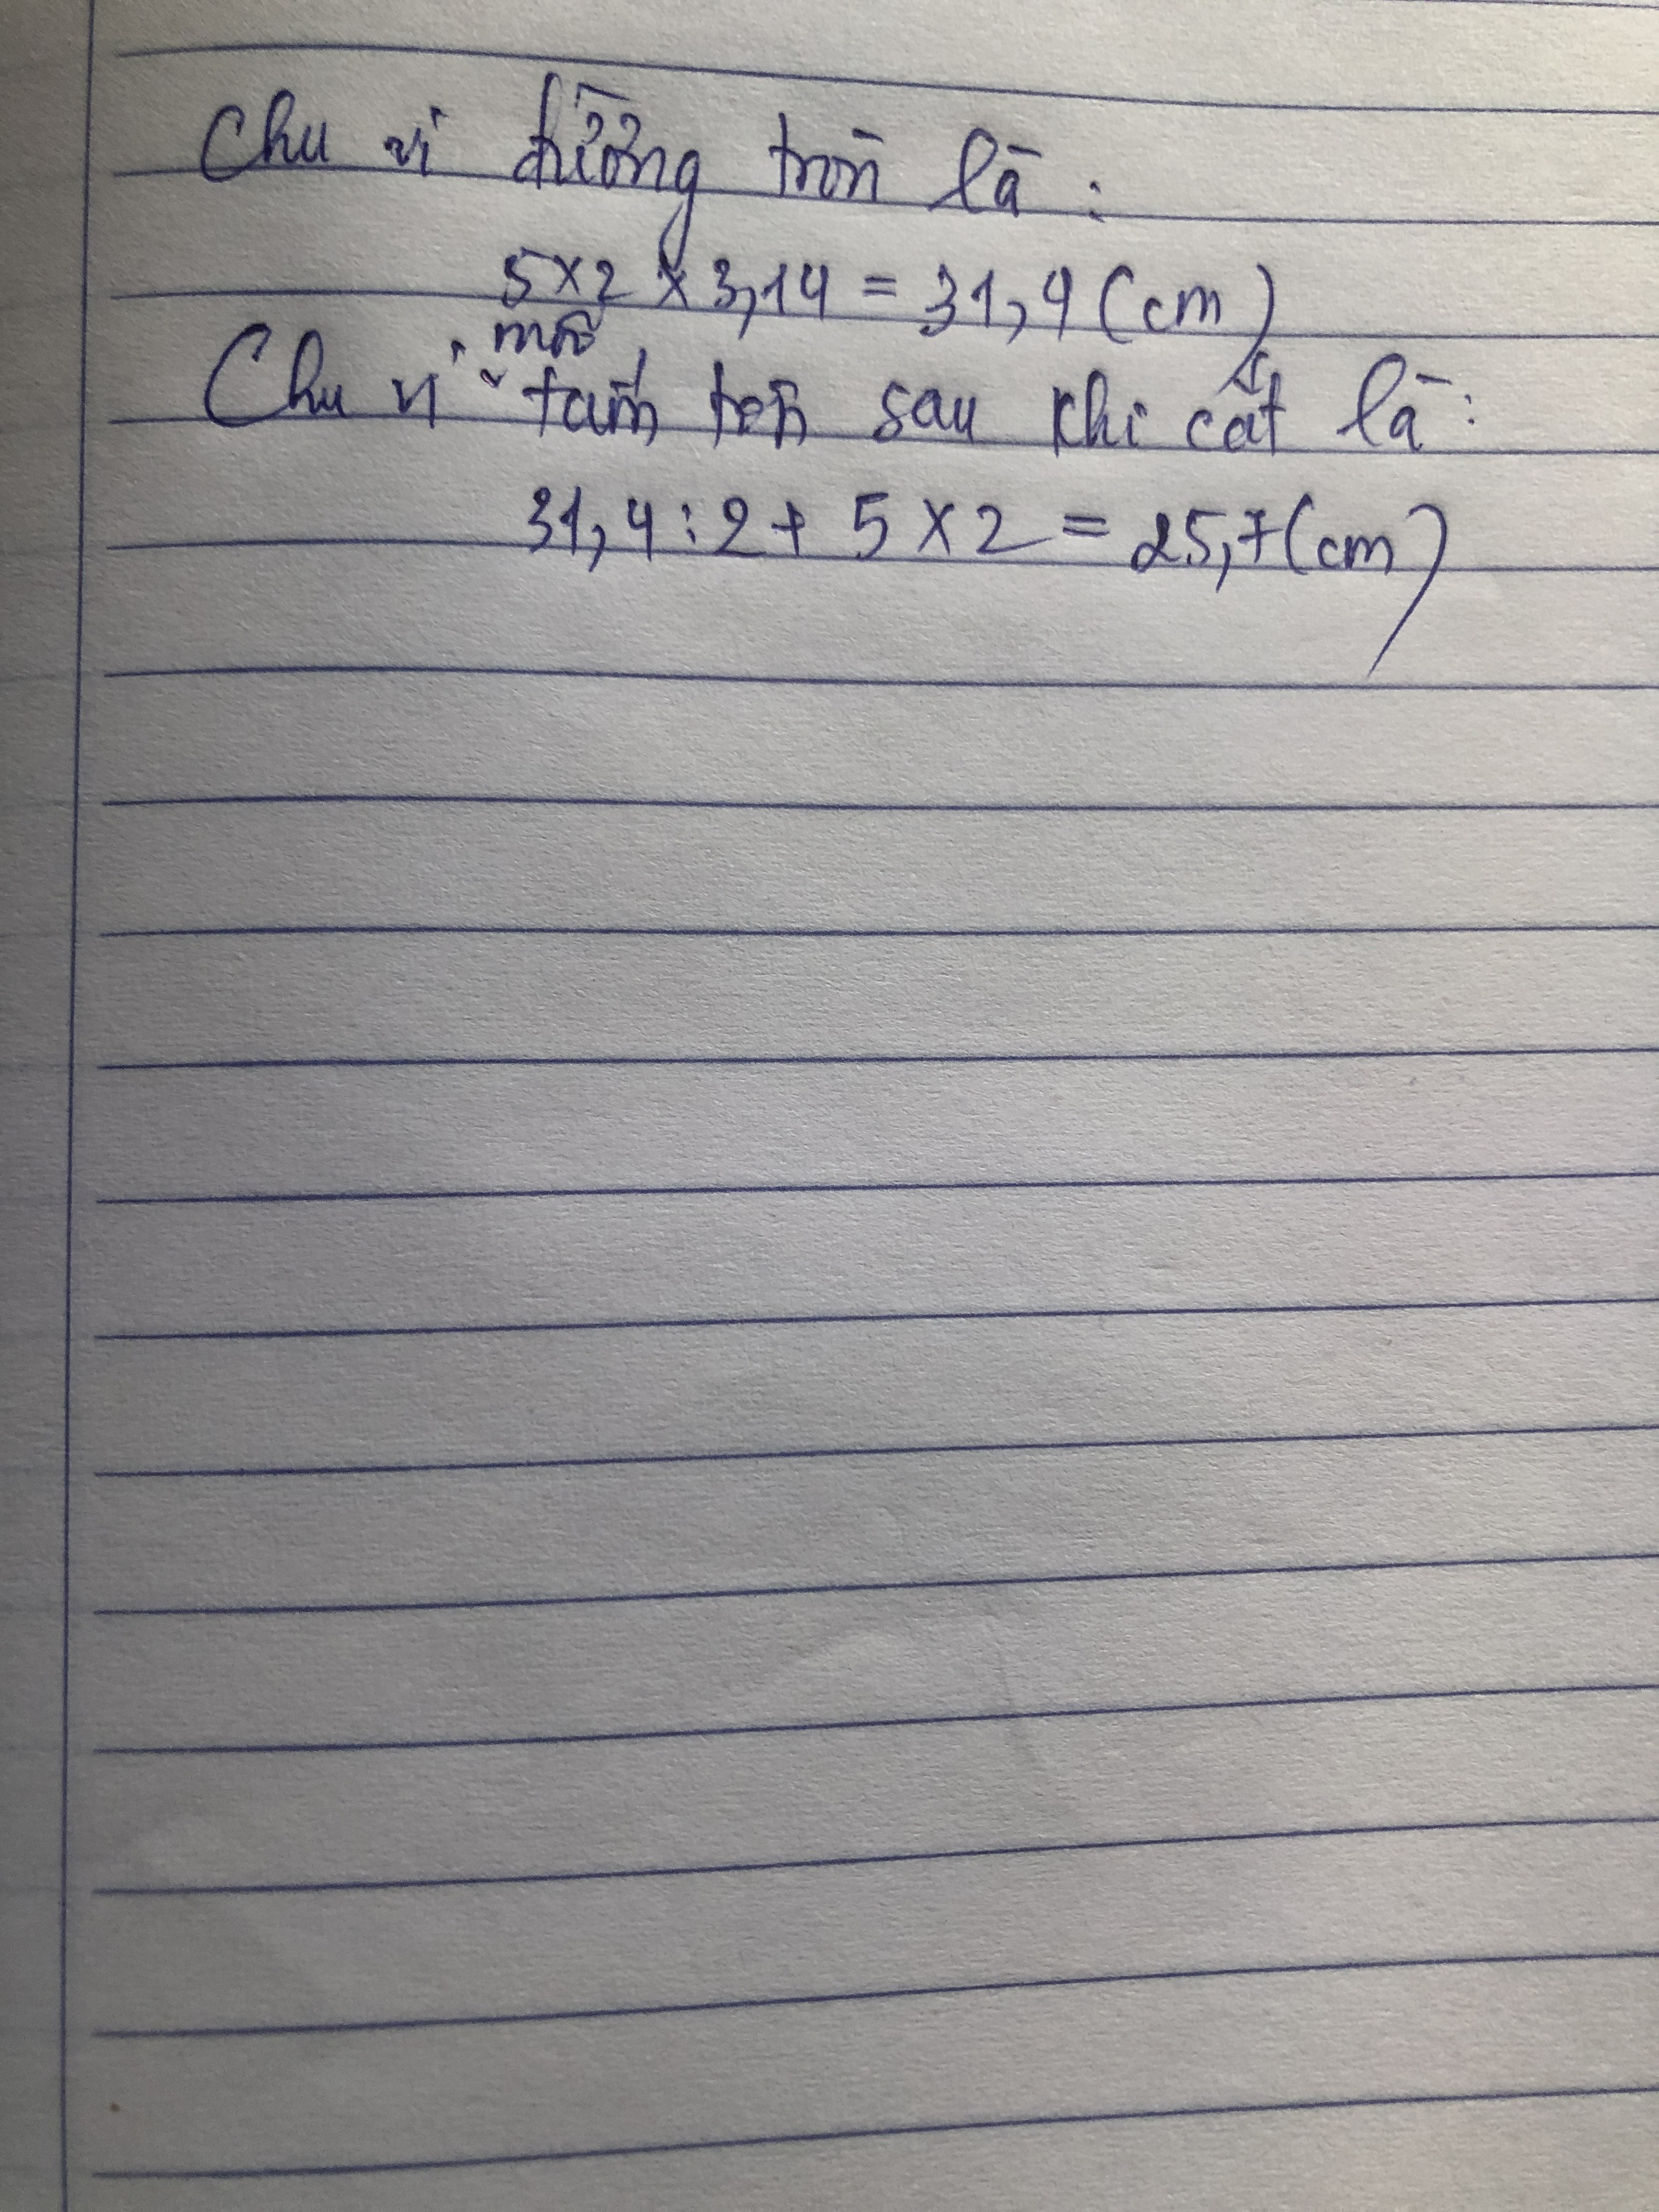 Chu vi đường tròn là :
5 x 2 x 3,14 = 31,4 (cm)
Chu vi mỗi tấm tôn sau khi cắt là :
31,4 : 2 + 5 x 2 = 25,7 (cm)